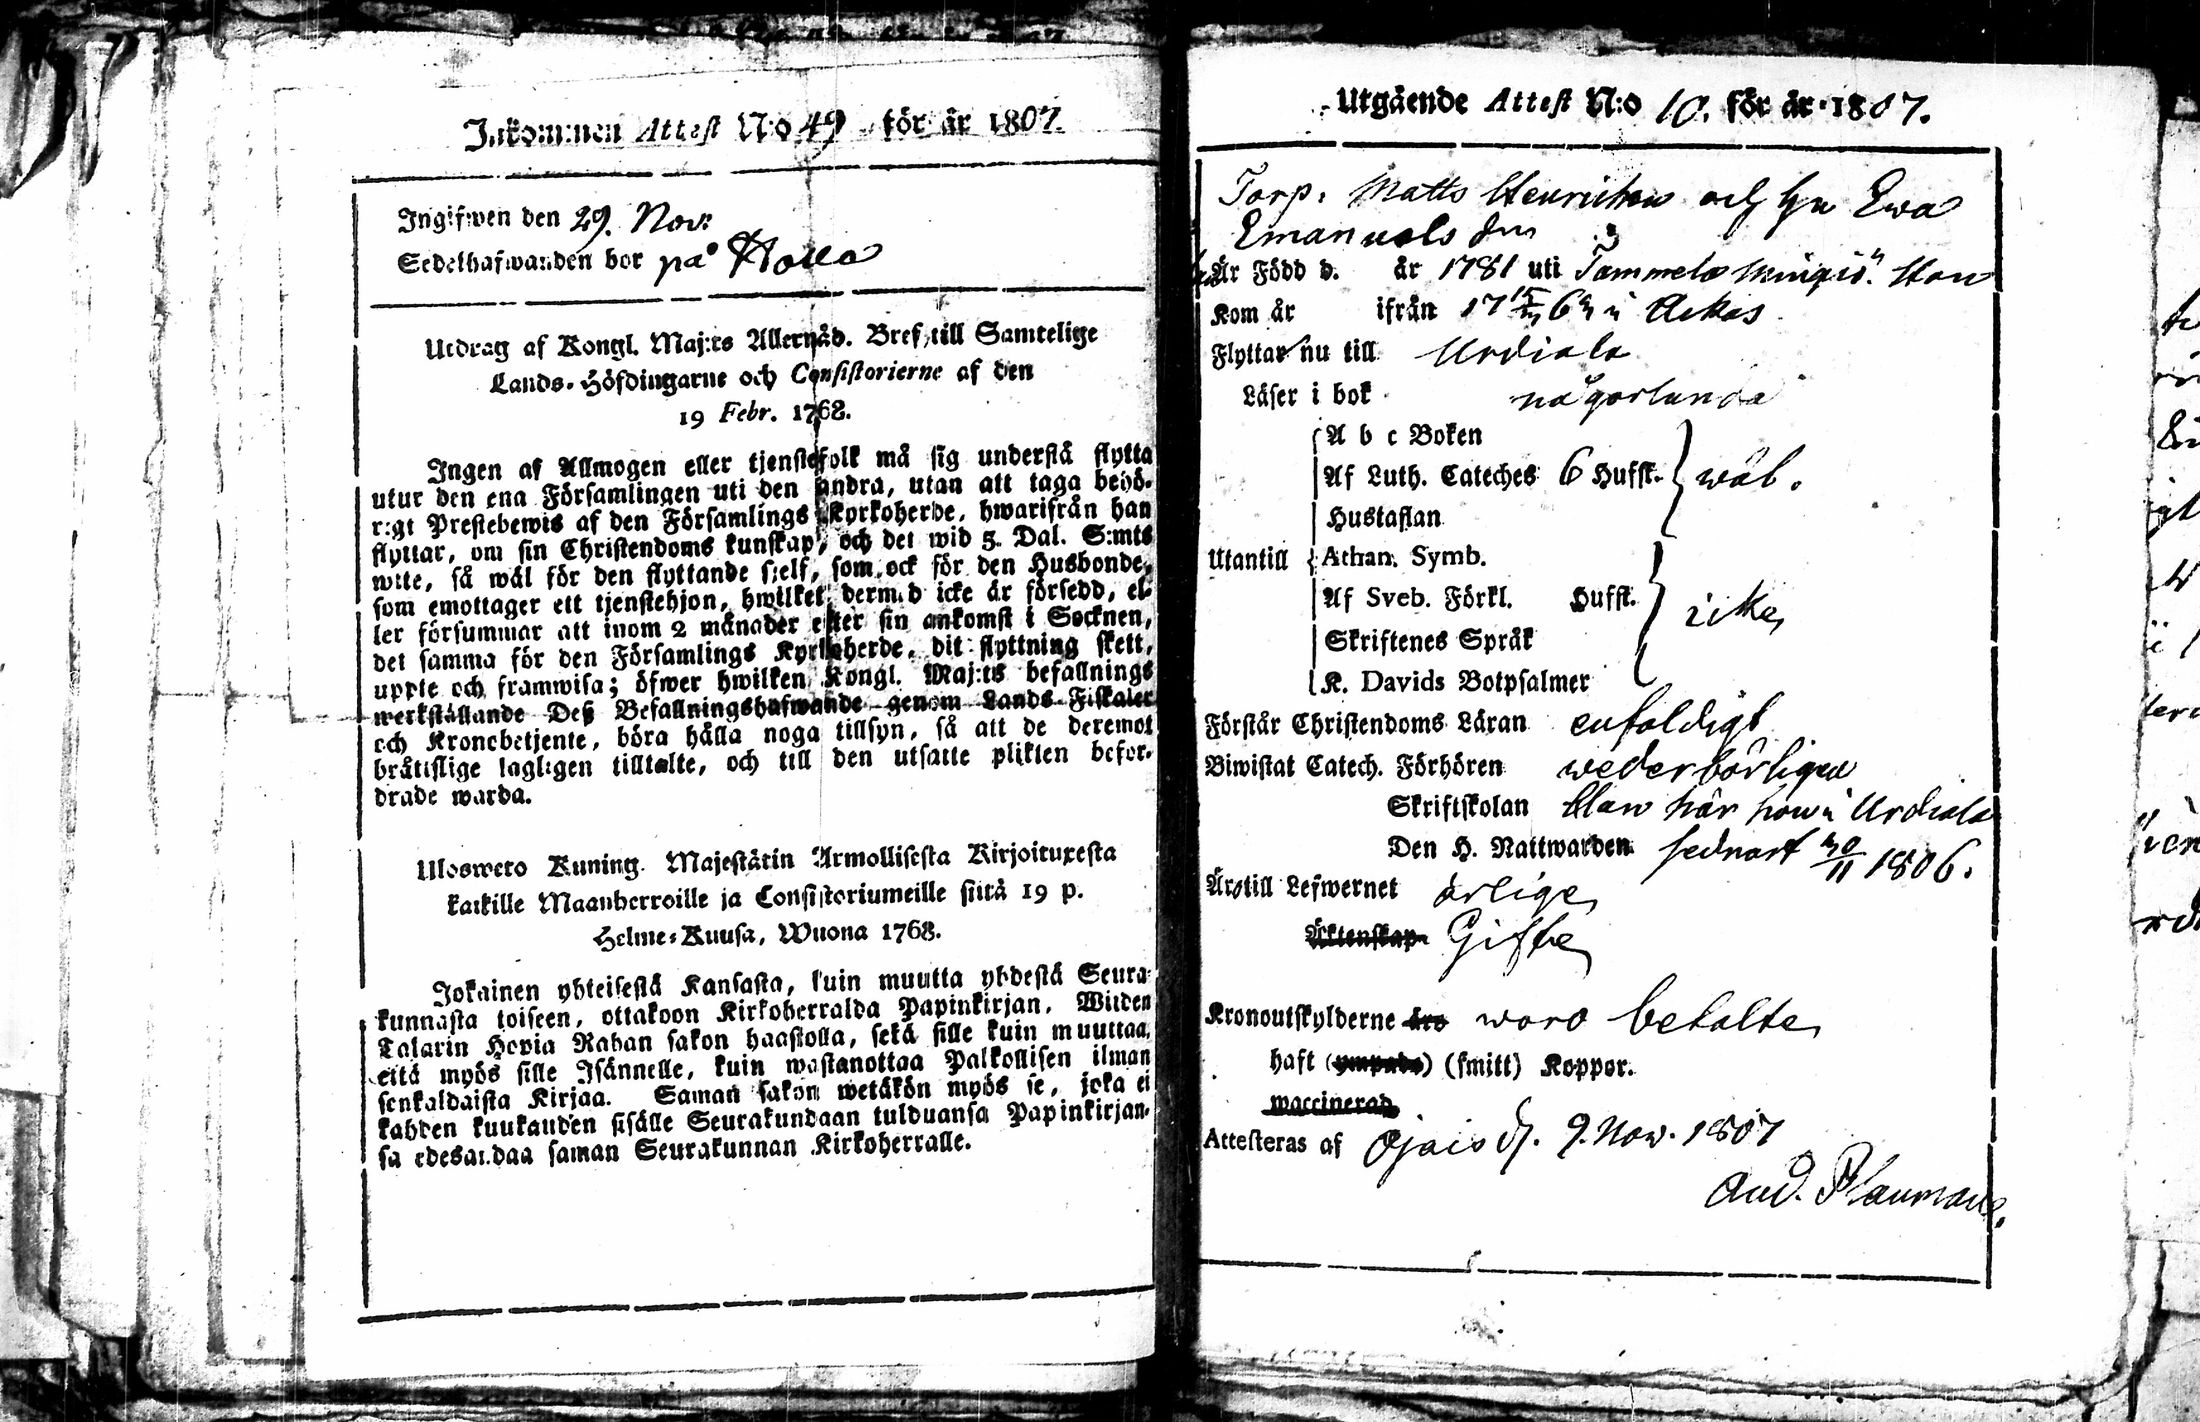 Inkommen Attest N:o 49 för år 1807.
Ingifwen den 29. Nov:
Sedelhafwanden bor på
Utdrag af Kongl. Maj:ts Allernåd. Bref till Samtelige
Lands-Höfdingarne och Consistorierne af den
19 Febr. 1768.
Ingen af Allmogen eller tjenstefolk må sig understå flytta
utur den ena Församlingen uti den andra, utan att taga behö-
rigt Prestebewis af den Församlings Kyrkoherde, hwarifrån han
flyttar, om sin Christendoms kunskap, och det wid 5. Dal. S:mts
wite, så wäl för den flyttande sjelf, som ock för den Husbonde,
som emottager ett tjenstehjon, hwilket dermed icke är försedd, el-
ler försummar att inom 2 månader efter sin ankomst i Socknen,
det samma för den Församlings Kyrkoherde, dit flyttning skett,
uppte och framwisa; öfwer hwilken Kongl. Maj:ts befallnings
werkställande Deß Befallningshafwande genom Lands Fiskaler
och Kronobetjente, böra hålla noga tillsyn, så att de deremot
bråtislige lagligen tilltalte, och till den utsatte plikten befor-
drade warda.
Ulosweto Kuning. Majestätin Armollisesta Kirjoituxesta
kaikille Maanherroille ja Consistoriumeille siitä 19 p.
Helme-Kuusa, Wuona 1768.
Jokainen yhteisestä Kansasta, kuin muutta yhdestä Seura-
kunnasta toiseen, ottakoon Kirkoherralda Papinkirjan, Wiiden
Talarin Hopia Rahan sakon haastolla, sekä sille kuin muuttaa,
että myös sille Isännelle, kuin wastanottaa Palkollisen ilman
senkaldaista Kirjaa. Saman sakon wetäkön myös se, joka ei
kahden kuukauden sisälle Seurakundaan tulduansa Papinkirjan-
sa edesandaa saman Seurakunnan Kirkoherralle.
Utgående Attest N:o 10. för år 1807.
Torp. Matts Henrichson och hu Ewa
Emanuels dtr
Är Född d. år 1781 uti Tammela Hon
Kom år ifrån 17 i Ackas
Flyttar nu till Urdiala
Läser i bok någorlunda
A b c Boken
Af Luth. Cateches 6 Hufst. wäl.
Hustaflan
Utantill Athan. Symb.
Af Sveb. Förkl. Hufst. icke
Skriftenes Språk
K. Davids Botpsalmer
Förstår Christendoms Läran enfaldigt
Biwistat Catech. Förhören wederbörligen
Skriftskolan Han här hon i Urdiala
Den H. Nattwarden sednast 30/11 1806.
Äro till Lefwernet ärlige
Äktenskap Gifte
Kronoutskylderne äro woro betalte
haft (ympade) (smitt) Koppor.
waccinerad
Attesteras af Ojais d. 9. Now. 1807
And. Planman.